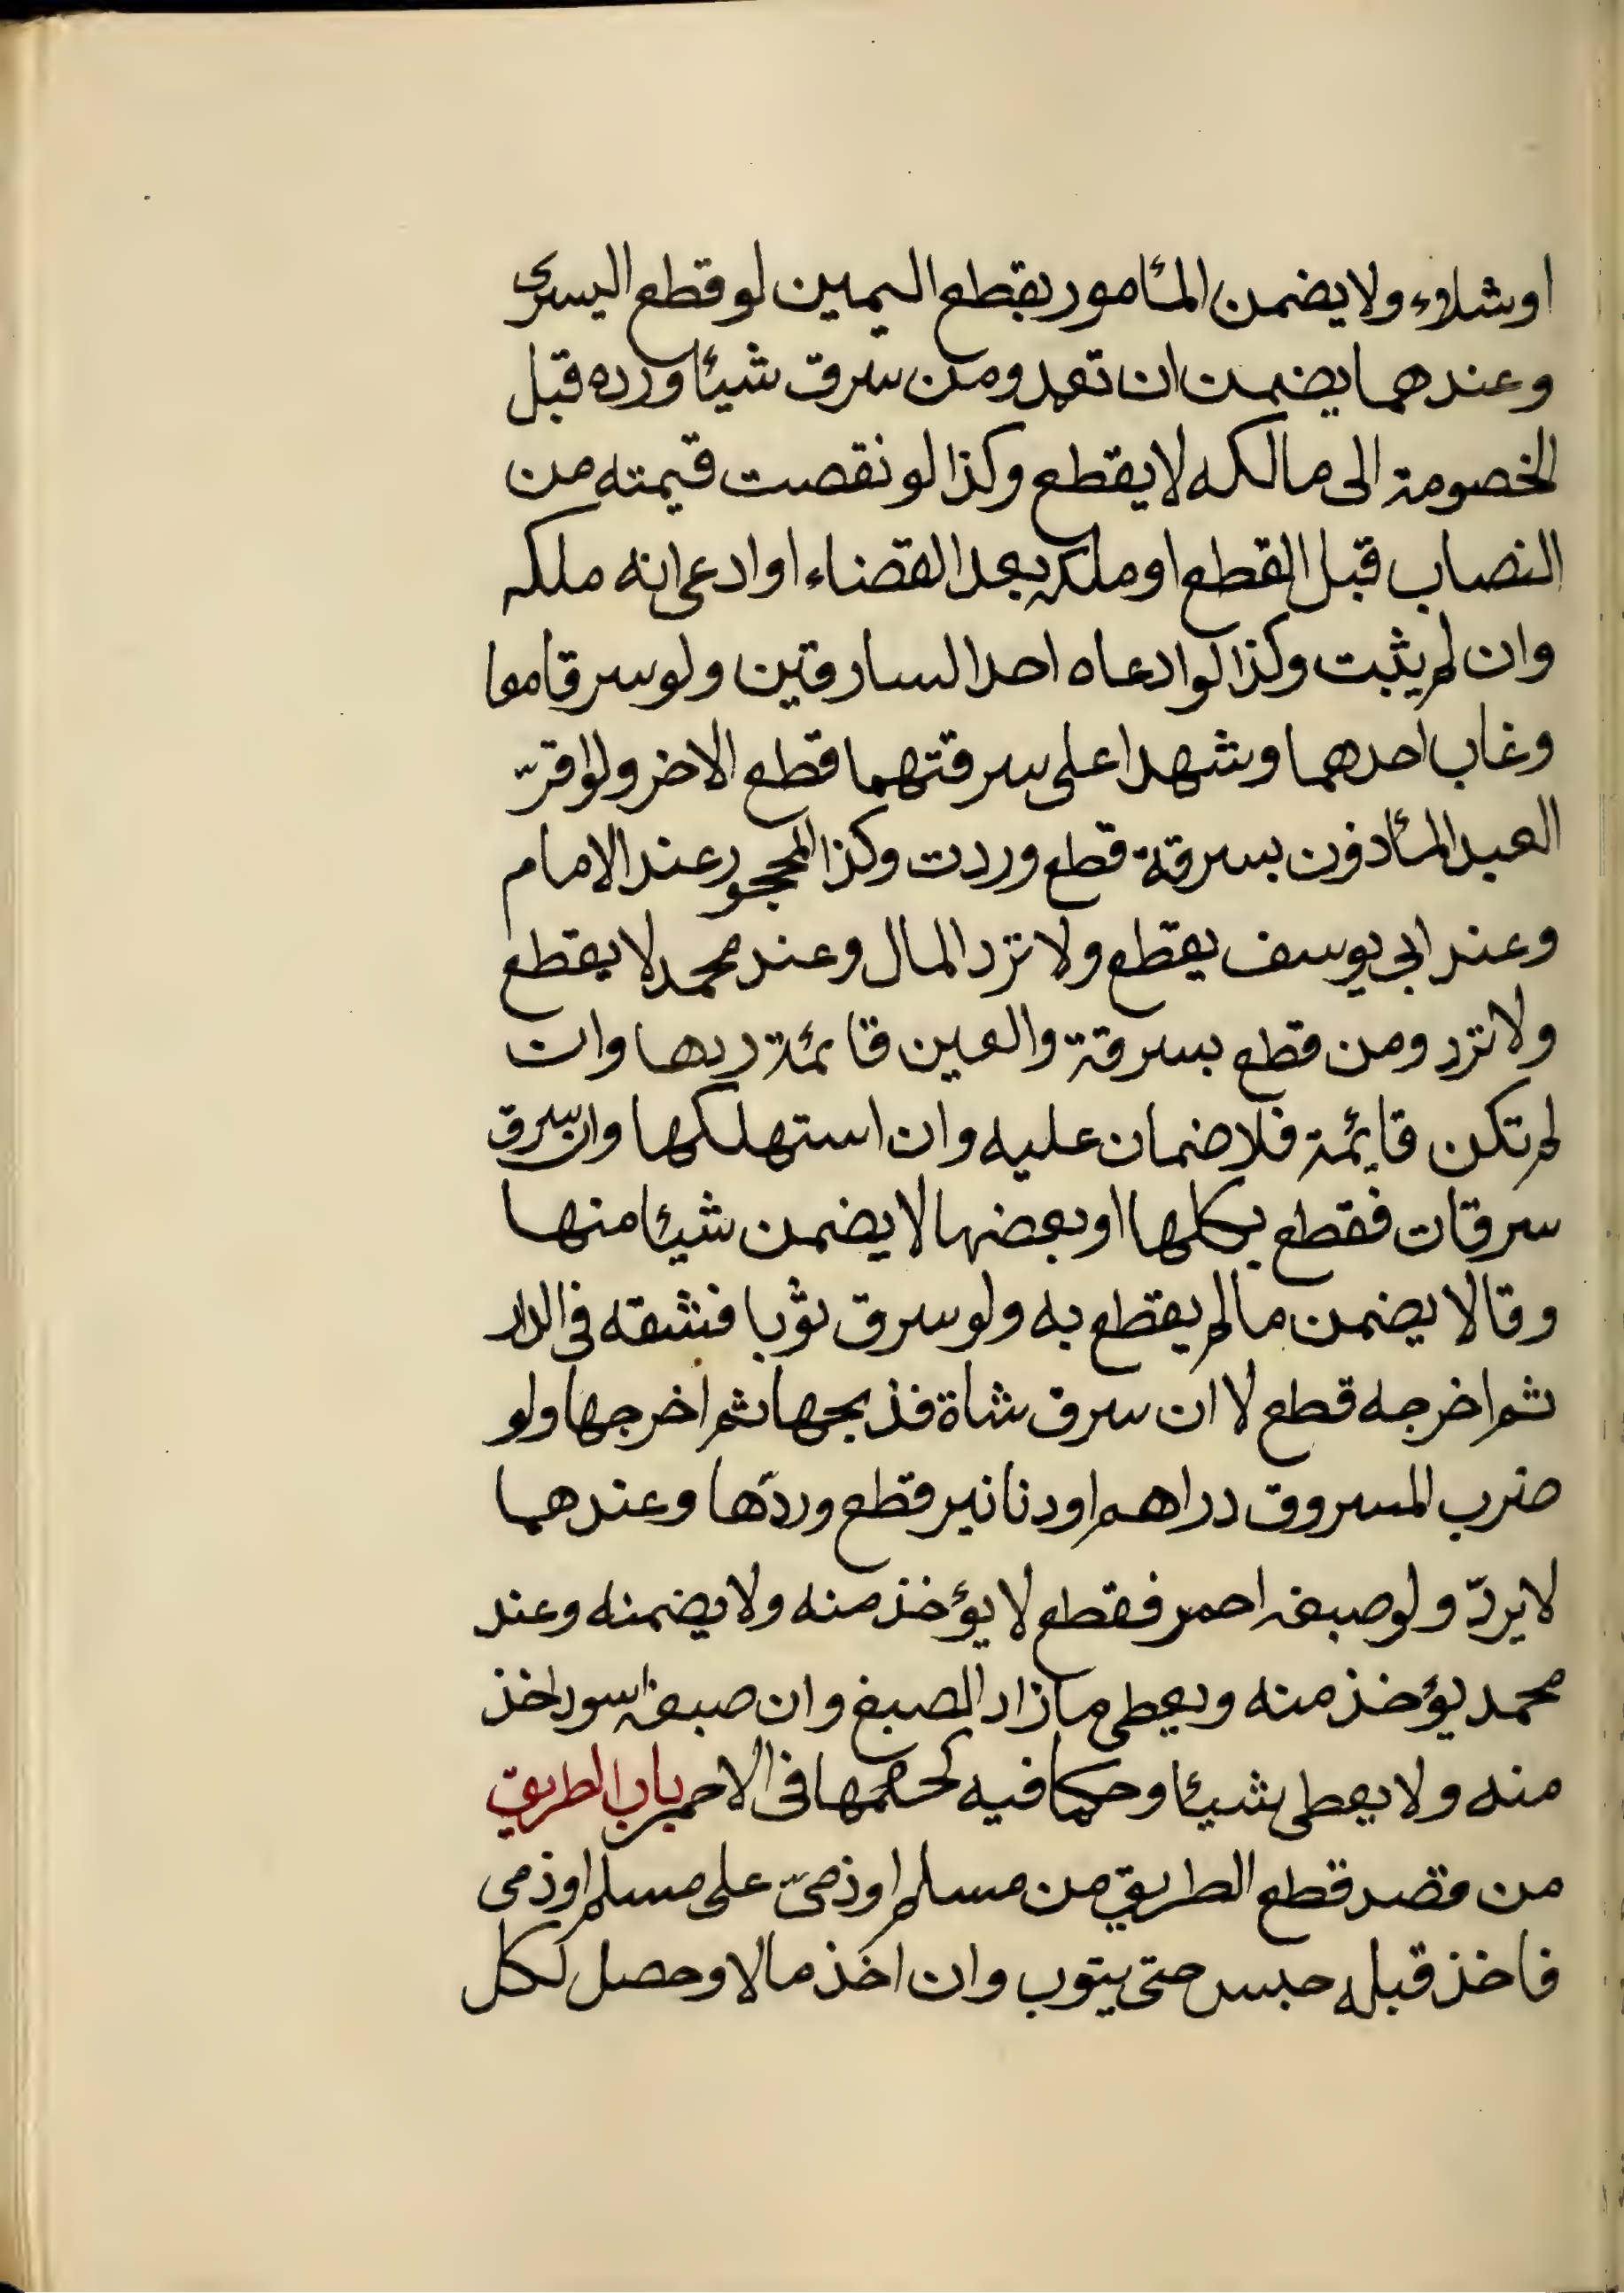 او شلاء ولا يضمن المأمور بقطع اليمين لو قطع اليسرى
وعندهما يضمن ان تعمد ومن سرق شيئا ورده قبل
الخصومة الى مالكه لا يقطع وكذا لو نقصت قيمته من
النصاب قبل القطع او ملكه بعد القضاء او ادعى انه ملكه
وان لم يثبت وكذا لو ادعاه احد السارقين ولو سرقا معا
وغاب احدهما وشهدا على سرقتهما قطع الاخر ولو اقرّ
العبد المأذون بسرقة قطع وردت وكذا المحجور عند الامام
وعند ابى يوسف يقطع ولا ترد المال وعند محمد لا يقطع
ولا ترد ومن قطع بسرقة والعين قائمة ردها وان
لم تكن قائمة فلا ضمان عليه وان استهلكها وان سرق
سرقات فقطع بكلها او بعضها لا يضمن شيئا منها
وقالا يضمن مالم يقطع به ولو سرق ثوبا فشقه فى الدار
ثم اخرجه قطع لا ان سرق شاة فذبحها ثم اخرجها ولو
ضرب المسروق دراهم او دنانير قطع وردّها وعندهما
لا يردّ ولو صبغه احمر فقطع لا يؤخذ منه ولا يضمنه وعند
محمد يؤخذ منه ويعطى ما زاد الصبغ وان صبغه اسود اخذ
منه ولا يعطى شيئا وحكما فيه كحكمها فى الاحمر باب الطريق
من قصد قطع الطريق من مسلم او ذمىّ على مسلم او ذمى
فاخذ قبله حبس حتى يتوب وان اخذ مالا وحصل لكل